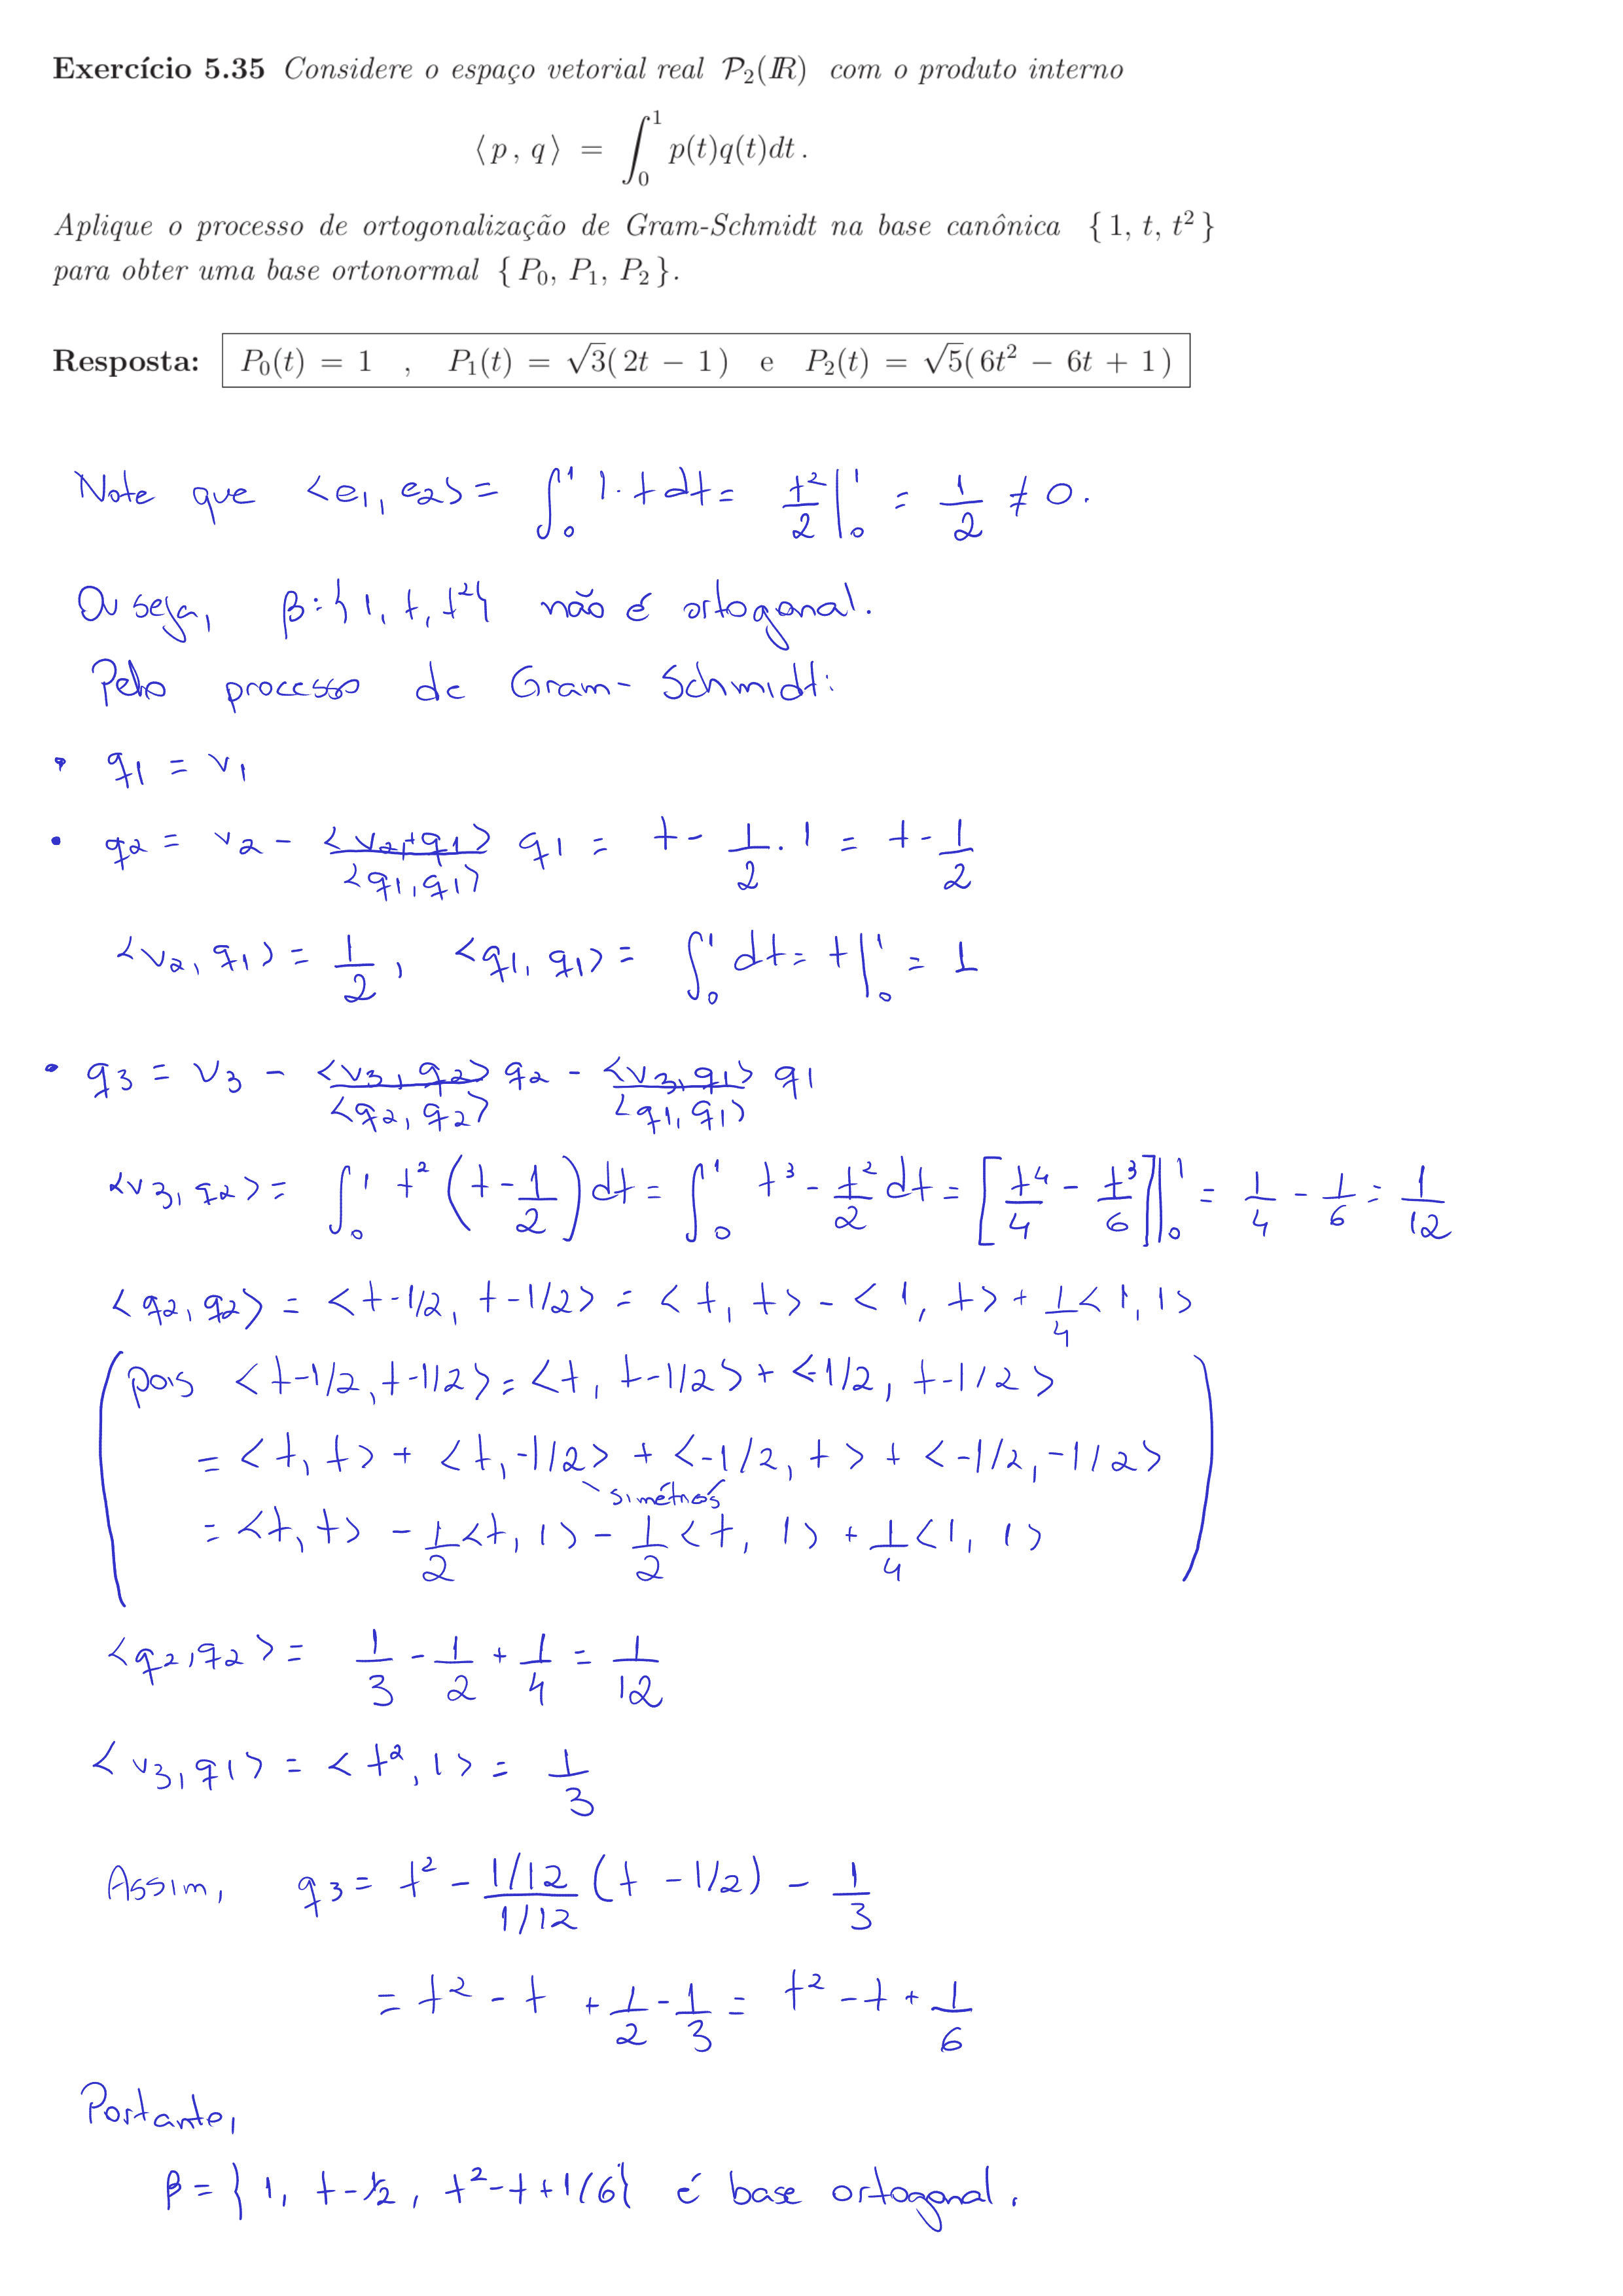 Exercício 5.35 Considere o espaço vetorial real P₂(ℝ) com o produto interno
⟨ p , q ⟩ = ∫₀¹ p(t)q(t)dt .
Aplique o processo de ortogonalização de Gram-Schmidt na base canônica { 1, t, t² }
para obter uma base ortonormal { P₀, P₁, P₂ }.
Resposta: P₀(t) = 1 , P₁(t) = √3( 2t − 1 ) e P₂(t) = √5( 6t² − 6t + 1 )
Note que <e₁, e₂> = ∫₀¹ 1·t dt = t²/2 |₀¹ = 1/2 ≠ 0.
Ou seja, β = {1, t, t²} não é ortogonal.
Pelo processo de Gram-Schmidt:
• q₁ = v₁
• q₂ = v₂ - <v₂, q₁>/<q₁, q₁> q₁ = t - 1/2 · 1 = t - 1/2
<v₂, q₁> = 1/2, <q₁, q₁> = ∫₀¹ dt = t |₀¹ = 1
• q₃ = v₃ - <v₃, q₂>/<q₂, q₂> q₂ - <v₃, q₁>/<q₁, q₁> q₁
<v₃, q₂> = ∫₀¹ t² (t - 1/2) dt = ∫₀¹ t³ - t²/2 dt = [t⁴/4 - t³/6] |₀¹ = 1/4 - 1/6 = 1/12
<q₂, q₂> = <t - 1/2, t - 1/2> = <t, t> - <1, t> + 1/4 <1, 1>
(pois <t-1/2, t-1/2> = <t, t-1/2> + <-1/2, t-1/2>
= <t, t> + <t, -1/2> + <-1/2, t> + <-1/2, -1/2>
simétricos
= <t, t> - 1/2 <t, 1> - 1/2 <t, 1> + 1/4 <1, 1>)
<q₂, q₂> = 1/3 - 1/2 + 1/4 = 1/12
<v₃, q₁> = <t², 1> = 1/3
Assim, q₃ = t² - (1/12)/(1/12) (t - 1/2) - 1/3
= t² - t + 1/2 - 1/3 = t² - t + 1/6
Portanto,
β = {1, t - 1/2, t² - t + 1/6} é base ortogonal.